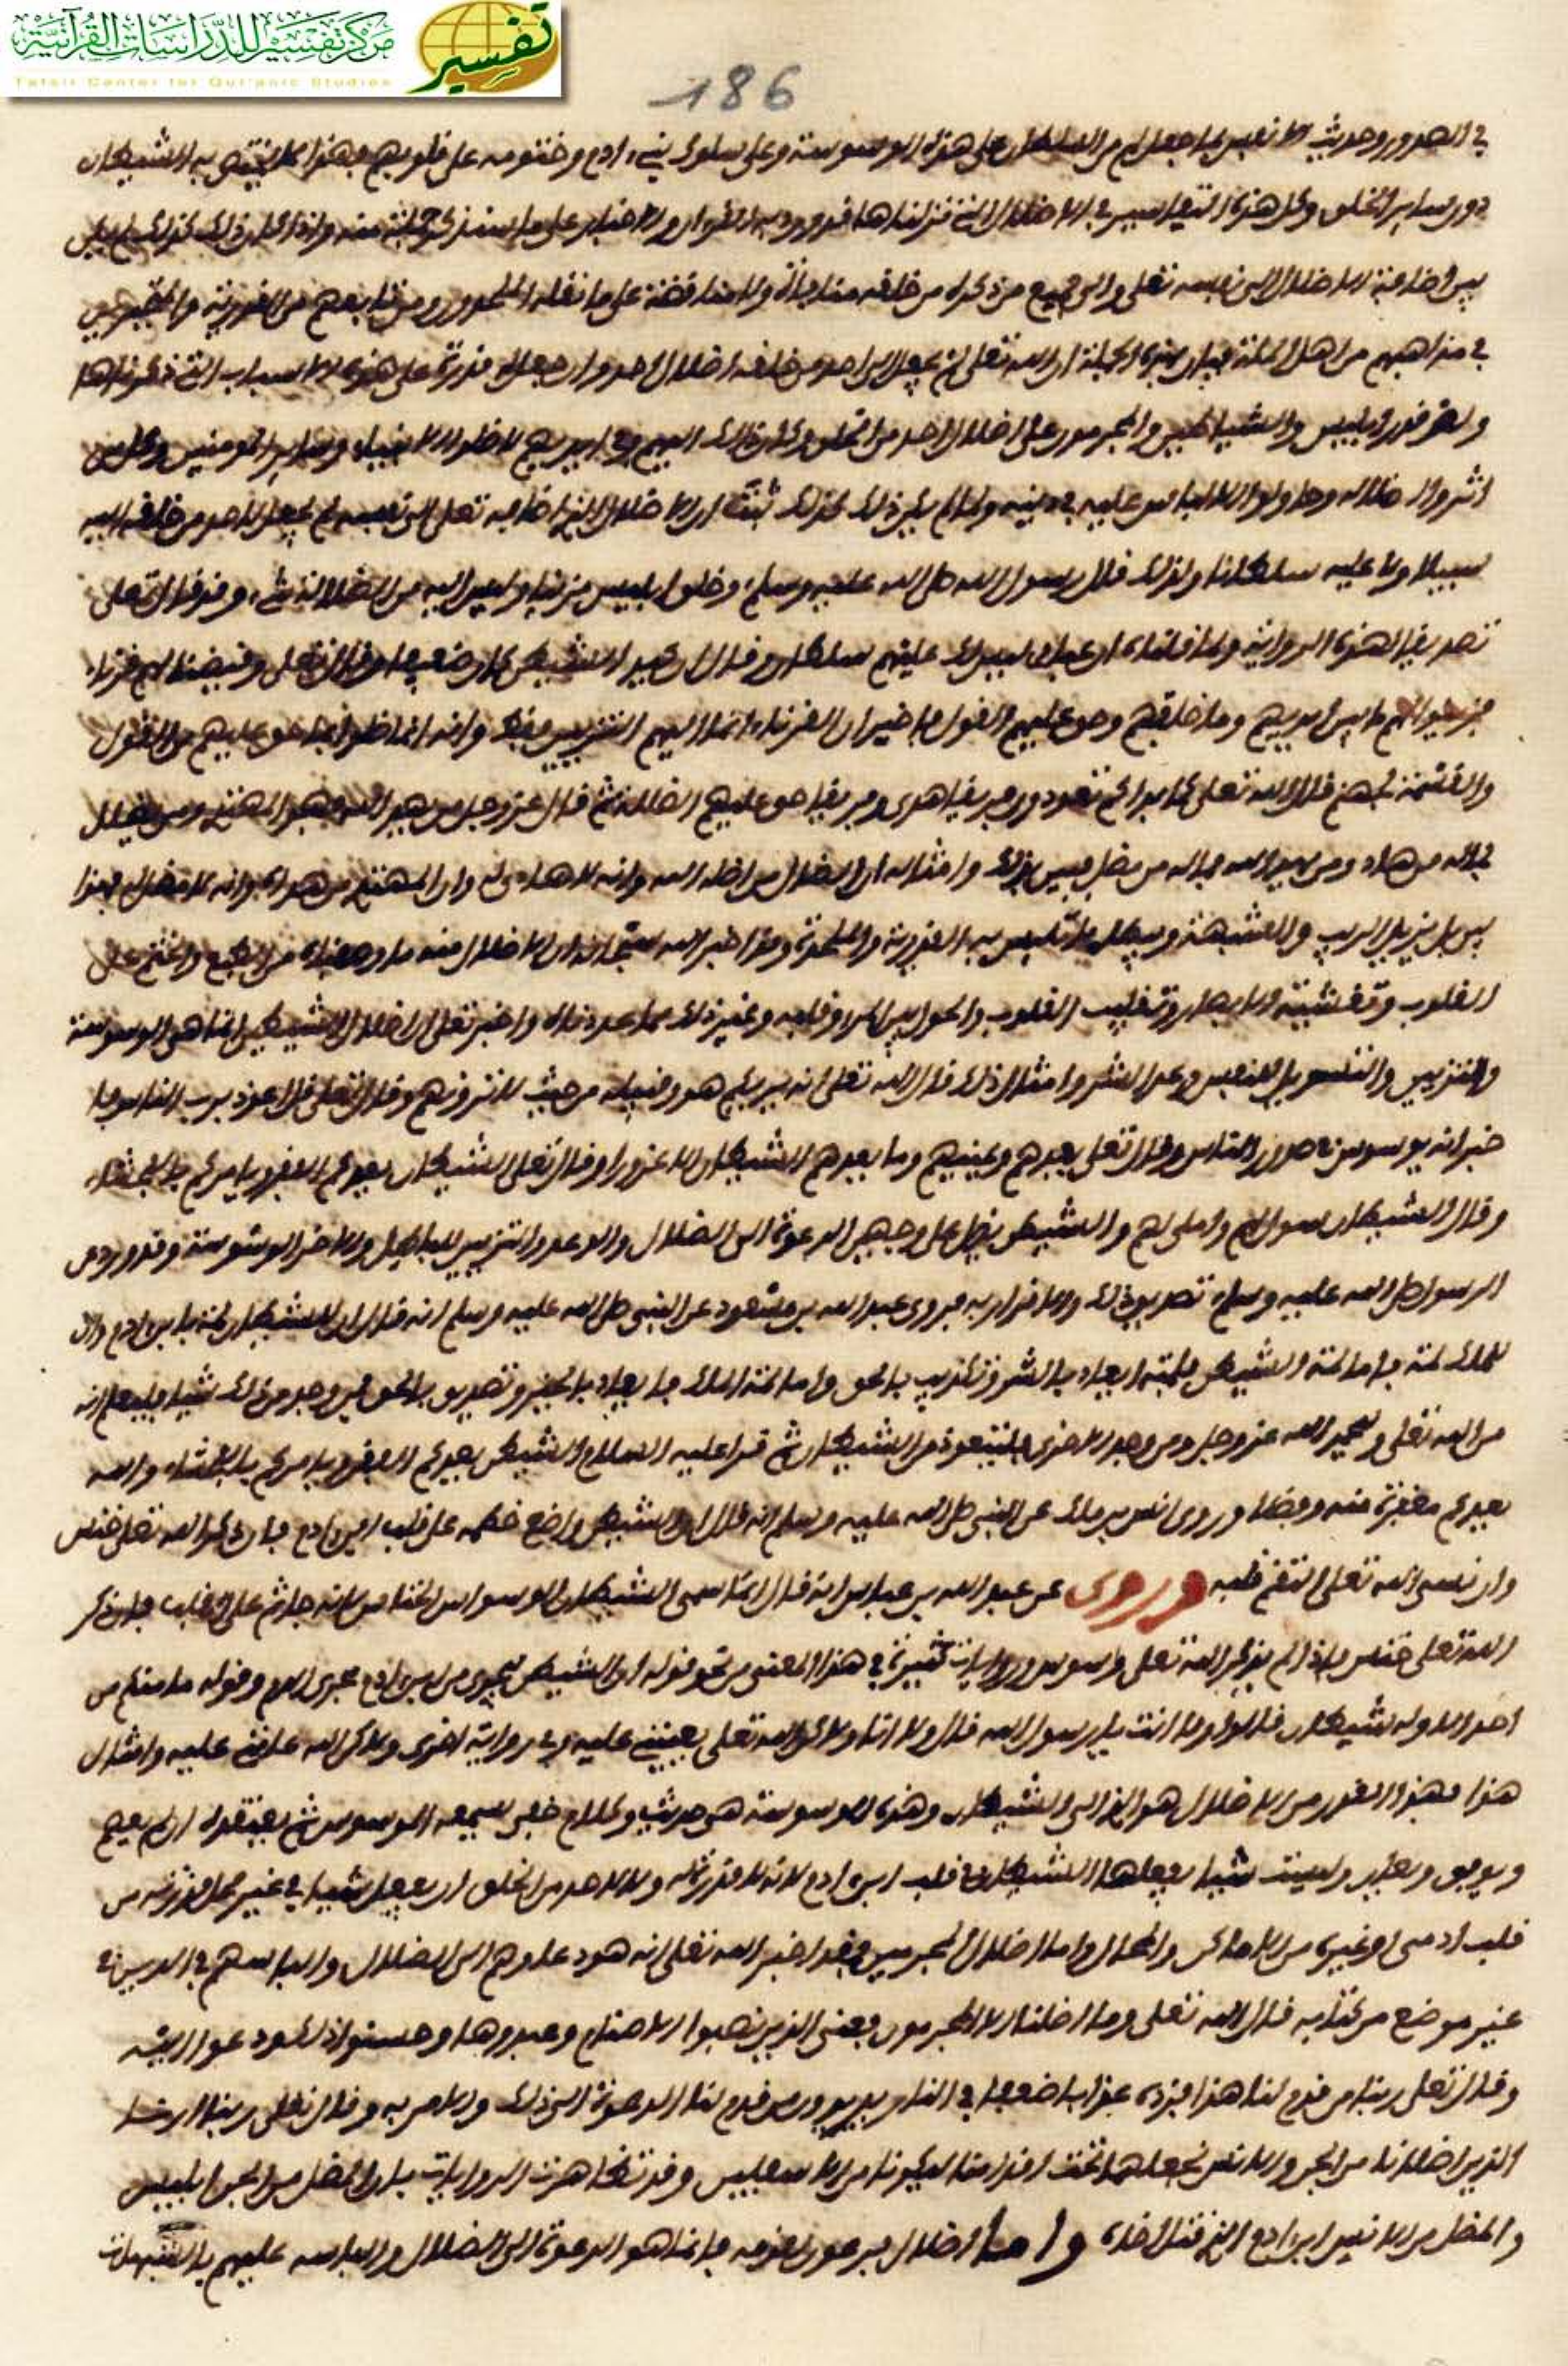 مركز تفسير للدراسات القرآنية
Tafsir Center for Qur'anic Studies
تفسير
186
في الصدور وحديث الانفس بما جعل لهم من السلطان على هذه الوسوسة وعلى سلوك بني ادم وخنومه على قلوبهم فهذا مما يختص به الشيطان
دون ساير الخلق وكل هذه التفاسير في الاضلال التي نزلناها قد ورد به القران والاخبار على ما سنذكر جملة منه واذا كان ذلك كذلك
بين اضافة الاضلال الى نفسه تعلى والى جميع من ذكره من خلقه منافاة ولا مناقضة على ما نقله الملحدون ومن تابعهم من القدرية
في مذاهبهم من اهل الملة فبان بهذه الجملة ان الله تعلى لم يجعل الى احد من خلقه اضلال احد وان جعل له قدرة على هذه الاسباب التي ذكرناها
ولو قدر ابليس والشياطين والمجرمون على اضلال احد من الخلق وكان ذلك اليهم وفي ايديهم لاضلوا الانبياء وساير المومنين وكل من
اثروا اضلاله وحاولوا الالباس عليه في دينه ولما لم يكن ذلك كذلك ثبت ان الاضلال الذي اضافه تعلى الى نفسه لم يجعل لاحد من خلقه اليه
سبيلا ولا عليه سلطانا ولذلك قال رسول الله صلى الله عليه وسلم وخلق ابليس مزينا وليس اليه من الضلالة شيء وقد قال تعلى
تصديقا لهذه الرواية ولما قلناه ان عبادي ليس لك عليهم سلطان وقال ان كيد الشيطن كان ضعيفا وقال تعلى وقيضنا لهم قرناء
فزينوا لهم ما بين ايديهم وما خلفهم وحق عليهم القول فاخبر ان القرناء انما اليهم التزيين فقط وانه انما ضلوا بما حق عليهم من القول
والقسمة لجهنم قال الله تعلى كما بداكم تعودون فريقا هدى وفريقا حق عليهم الضلالة ثم قال عز وجل من يهد الله فهو المهتد ومن يضلل
فما له من هاد ومن يهد الله فما له من مضل فبين بذلك وامثاله ان الضال من اضله الله وانه لا هادي له وان المهتدي من هداه وانه لا مضل له فهذا
بين يزيل الريب والشبهة ويبطل ما تلبس به القدرية والملحدة وقد اخبر الله سبحانه ان الاضلال منه ما وصفناه من الطبع والختم على
القلوب وتغشية الابصار وتقليب القلوب والحول بين المرء وقلبه وغير ذلك مما عددناه واخبر تعلى ان اضلال الشيطن انما هي الوسوسة
والتزيين والتسويل للنفس وعد الشر وامثال ذلك قال الله تعلى انه يريكم هو وقبيله من حيث لا ترونهم وقال تعلى قل اعوذ برب الناس فا
خبر انه يوسوس في صدور الناس وقال تعلى يعدهم ويمنيهم وما يعدهم الشيطان الا غرورا وقال تعلى الشيطان يعدكم الفقر ويامركم بالفحشاء
وقال الشيطان سول لهم واملى لهم والشيطن يضل على وجهين الدعوة الى الضلال والوعد والتزيين للباطل والاخر الوسوسة وقد ورد عن
الرسول صلى الله عليه وسلم تصديق ذلك والاقرار به فروى عبد الله بن مسعود عن النبي صلى الله عليه وسلم انه قال ان للشيطان لمة بابن ادم وان
للملك لمة فاما لمة الشيطن فلمته ايعاد بالشر وتكذيب بالحق واما لمة الملك فايعاد بالخير وتصديق بالحق فمن وجد من ذلك شيا فليعلم انه
من الله تعلى وليحمد الله عز وجل ومن وجد الاخرى فليتعوذ من الشيطان ثم قرا عليه السلام الشيطن يعدكم الفقر ويامركم بالفحشاء والله
يعدكم مغفرة منه وفضلا وروى انس بن مالك عن النبي صلى الله عليه وسلم انه قال ان الشيطن واضع خطمه على قلب ابن ادم فان ذكر الله تعلى خنس
وان نسي الله تعلى التقم قلبه وروي عن عبد الله بن عباس انه قال انما سمي الشيطان الوسواس الخناس لانه جاثم على القلب فان ذكر
الله تعلى خنس واذا لم يذكر الله تعلى وسوس وروايات كثيرة في هذا المعنى من نحو قوله ان الشيطن يجري من ابن ادم مجرى الدم وقوله ما منكم من
احد الا وله شيطان قالوا وما انت يا رسول الله قال ولا انا ولاكن الله تعلى يعينني عليه وفي رواية اخرى ولاكن الله عانني عليه وامثال
هذا فهذا القدر من الاضلال هو الذي الى الشيطان وهذه الوسوسة هي حديث وكلام خفي يسمعه الموسوس ثم يعتقده ان لم يعصم
ويوفق ويعان وليست شيا يفعلها الشيطان في قلب ابن ادم لانه لا قدرة له ولا لاحد من الخلق ان يفعل شيا في غير محل قدرته من
قلب ادمي او غيره من الاماكن والمحال واما اضلال المجرمين فقد اخبر الله تعلى انه هو دعاوهم الى الضلال والباسهم في الدين في
غير موضع من كتابه قال الله تعلى وما اضلنا الا المجرمون يعني الذين نصبوا الاصنام وعبدوها وحسنوا ذلك ودعوا اليه
وقال تعلى ربنا من قدم لنا هذا فزده عذابا ضعفا في النار يريد من قدم لنا الدعوة الى ذلك والامر به وقال تعلى ربنا ارنا
الذين اضلانا من الجن والانس نجعلهما تحت اقدامنا ليكونا من الاسفلين وقد تظاهرت الروايات بان المضل من الجن ابليس
والمضل من الانس ابن ادم الذي قتل اخاه واما اضلال فرعون لقومه فانما هو الدعوة الى الضلال والباسه عليهم بالشبهات